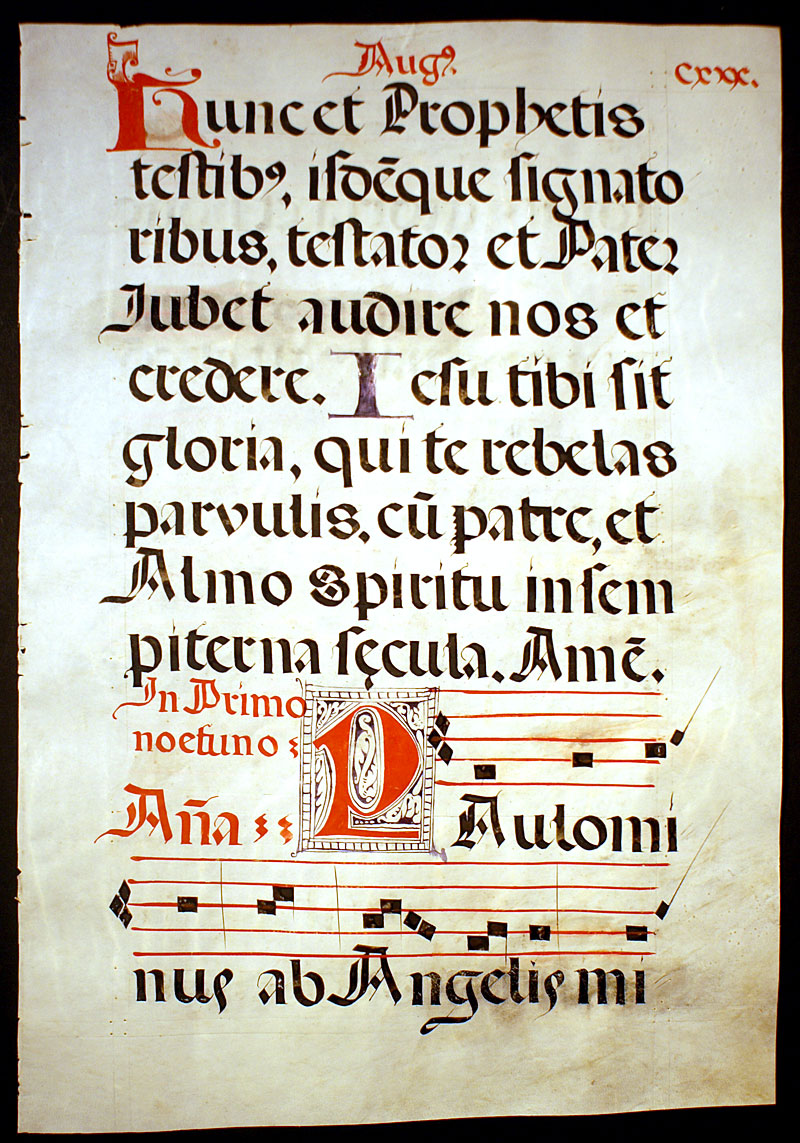 Augꝰ. cxxx.
Hunc et Prophetis
teſtibꝰ, iſdēque ſignato
ribus, teſtatoꝛ et Pateꝛ
Iubet audire nos et
credere. Iesu tibi ſit
gloria, qui te rebelas
parvulis, cū patre, et
Almo Spiritu inſem
piterna ſęcula. Amē.
In Primo
noctuno :
Aña : : P Aulomi
nus ab Angelis mi